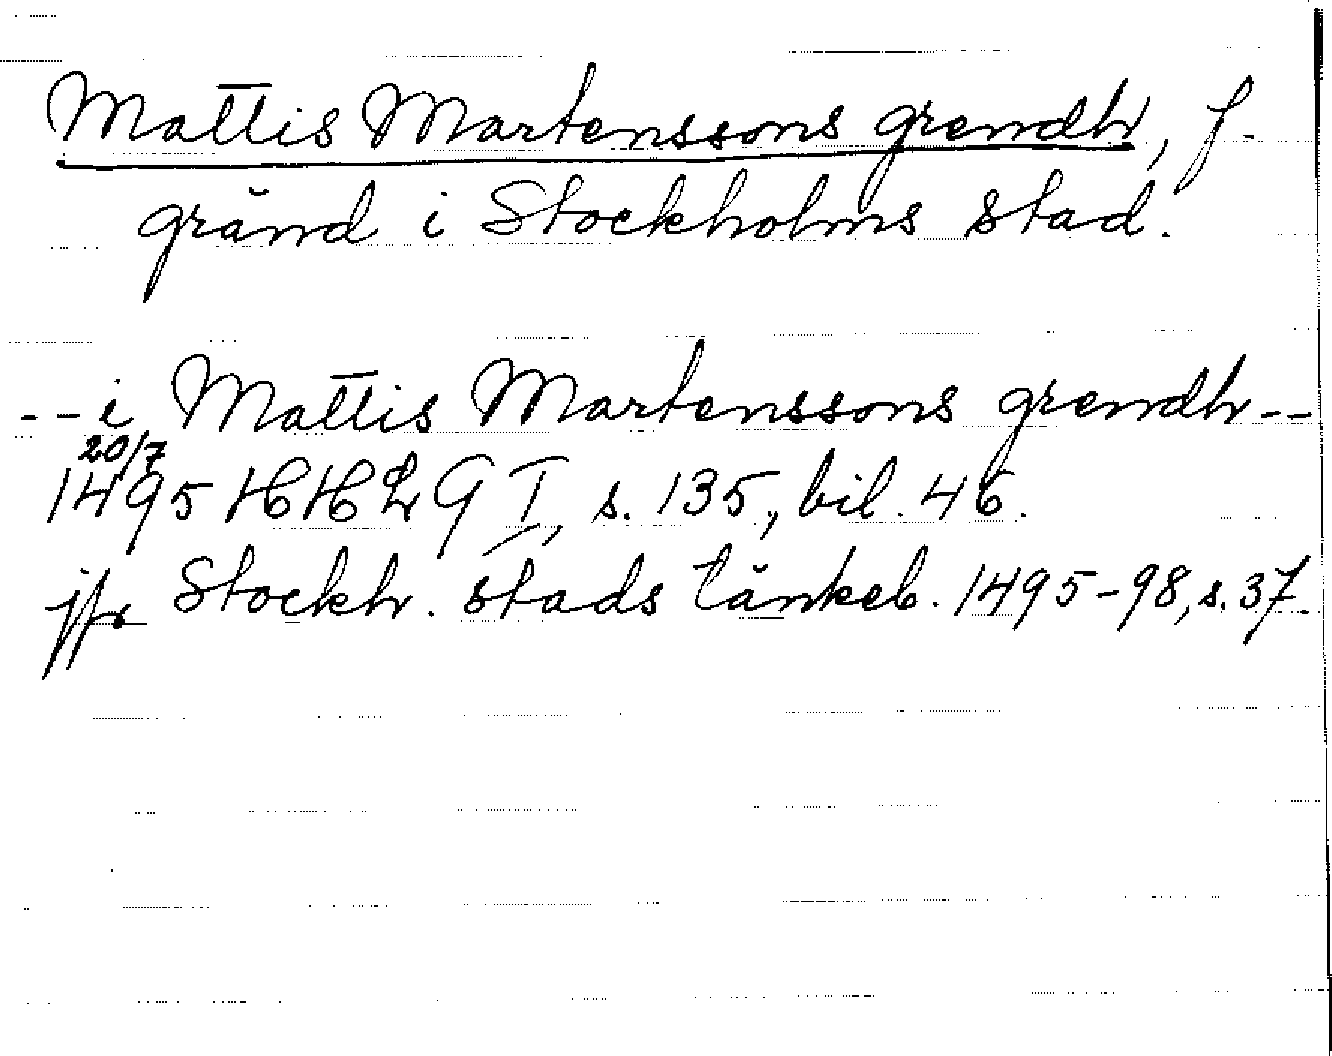 Mattis Martenssons grendh, f.
gränd i Stockholms stad.
-- i Mattis Martenssons grendh --
20/7
1495 HHLG I, s. 135, bil. 46.
jfr Stockh. stads tänkeb. 1495-98, s. 37.